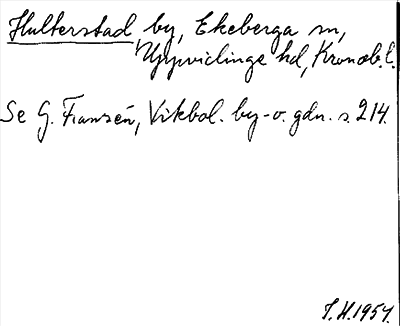 Hulterstad by, Ekeberga sn,
Uppvidinge hd, Kronob. l.
Se G. Franzén, Vikbol. by- o. gdn. s. 214.
I.H. 1954.